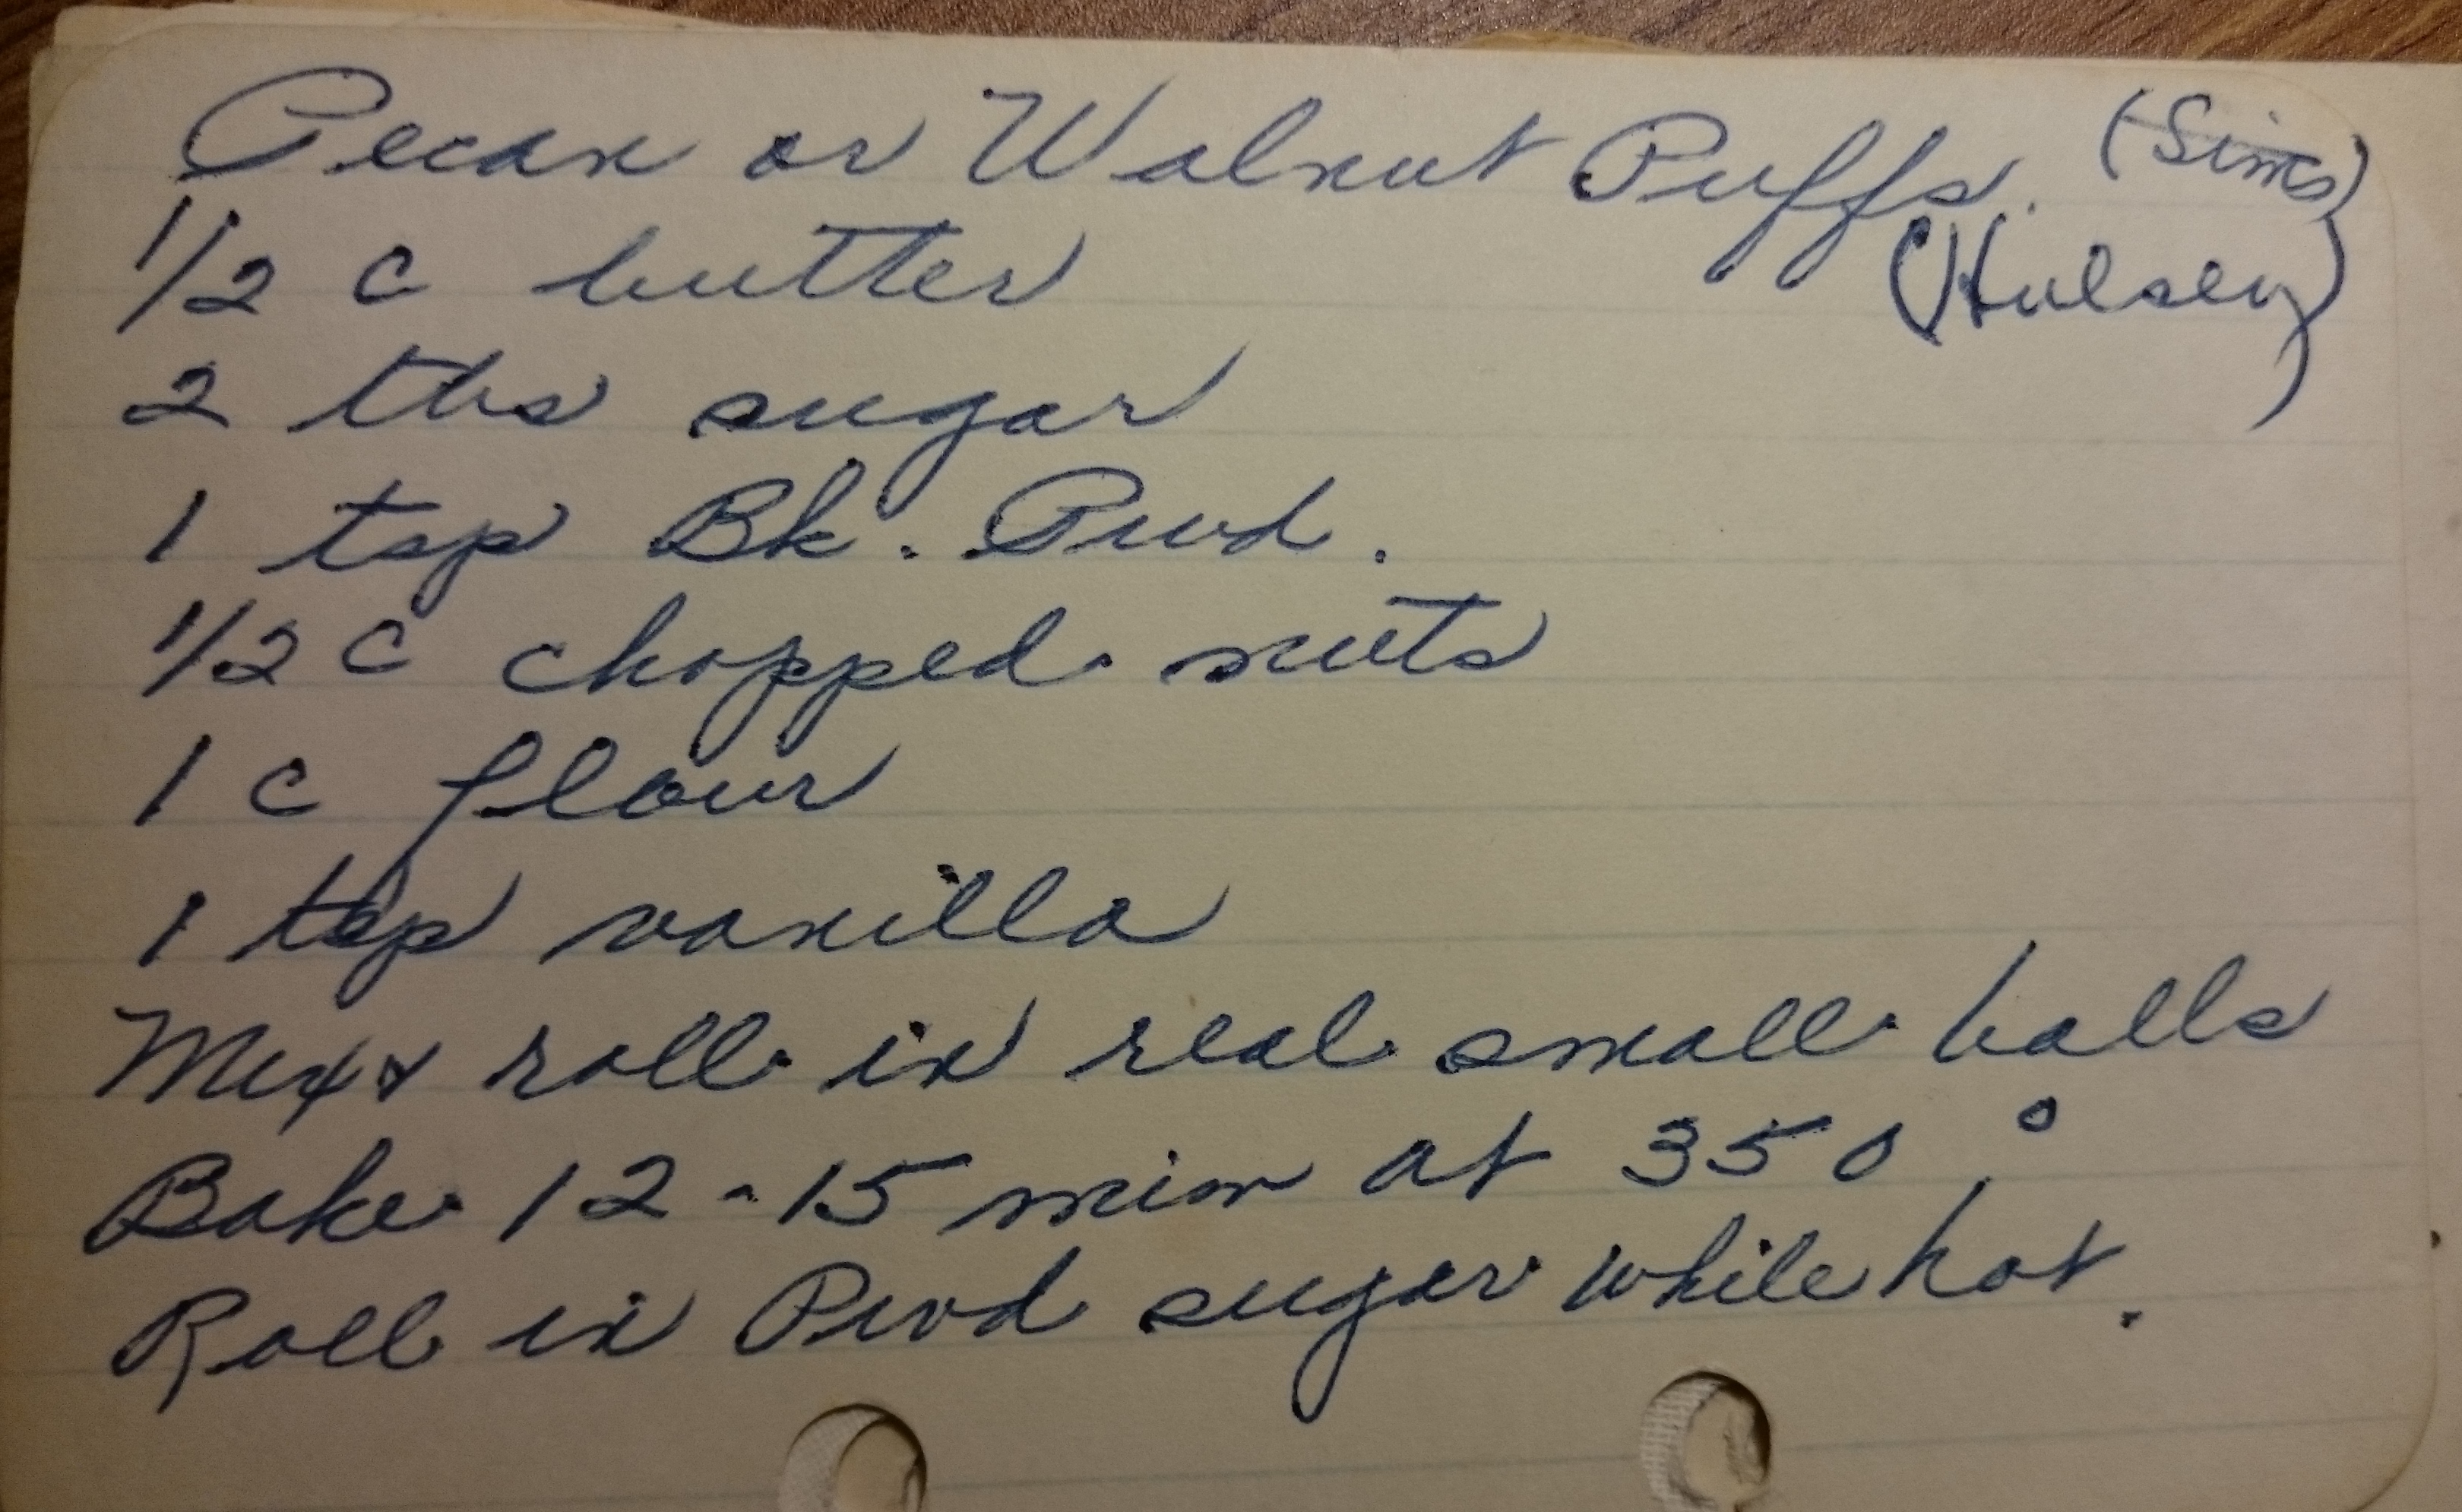 Pecan or Walnut Puffs. (Sims)
(Hulsey)
1/2 c butter
2 tbs sugar
1 tsp Bk. Pwd.
1/2 c chopped nuts
1 c flour
1 tsp vanilla
Mix & roll in real small balls
Bake 12-15 min at 350°
Roll in Pwd sugar while hot.